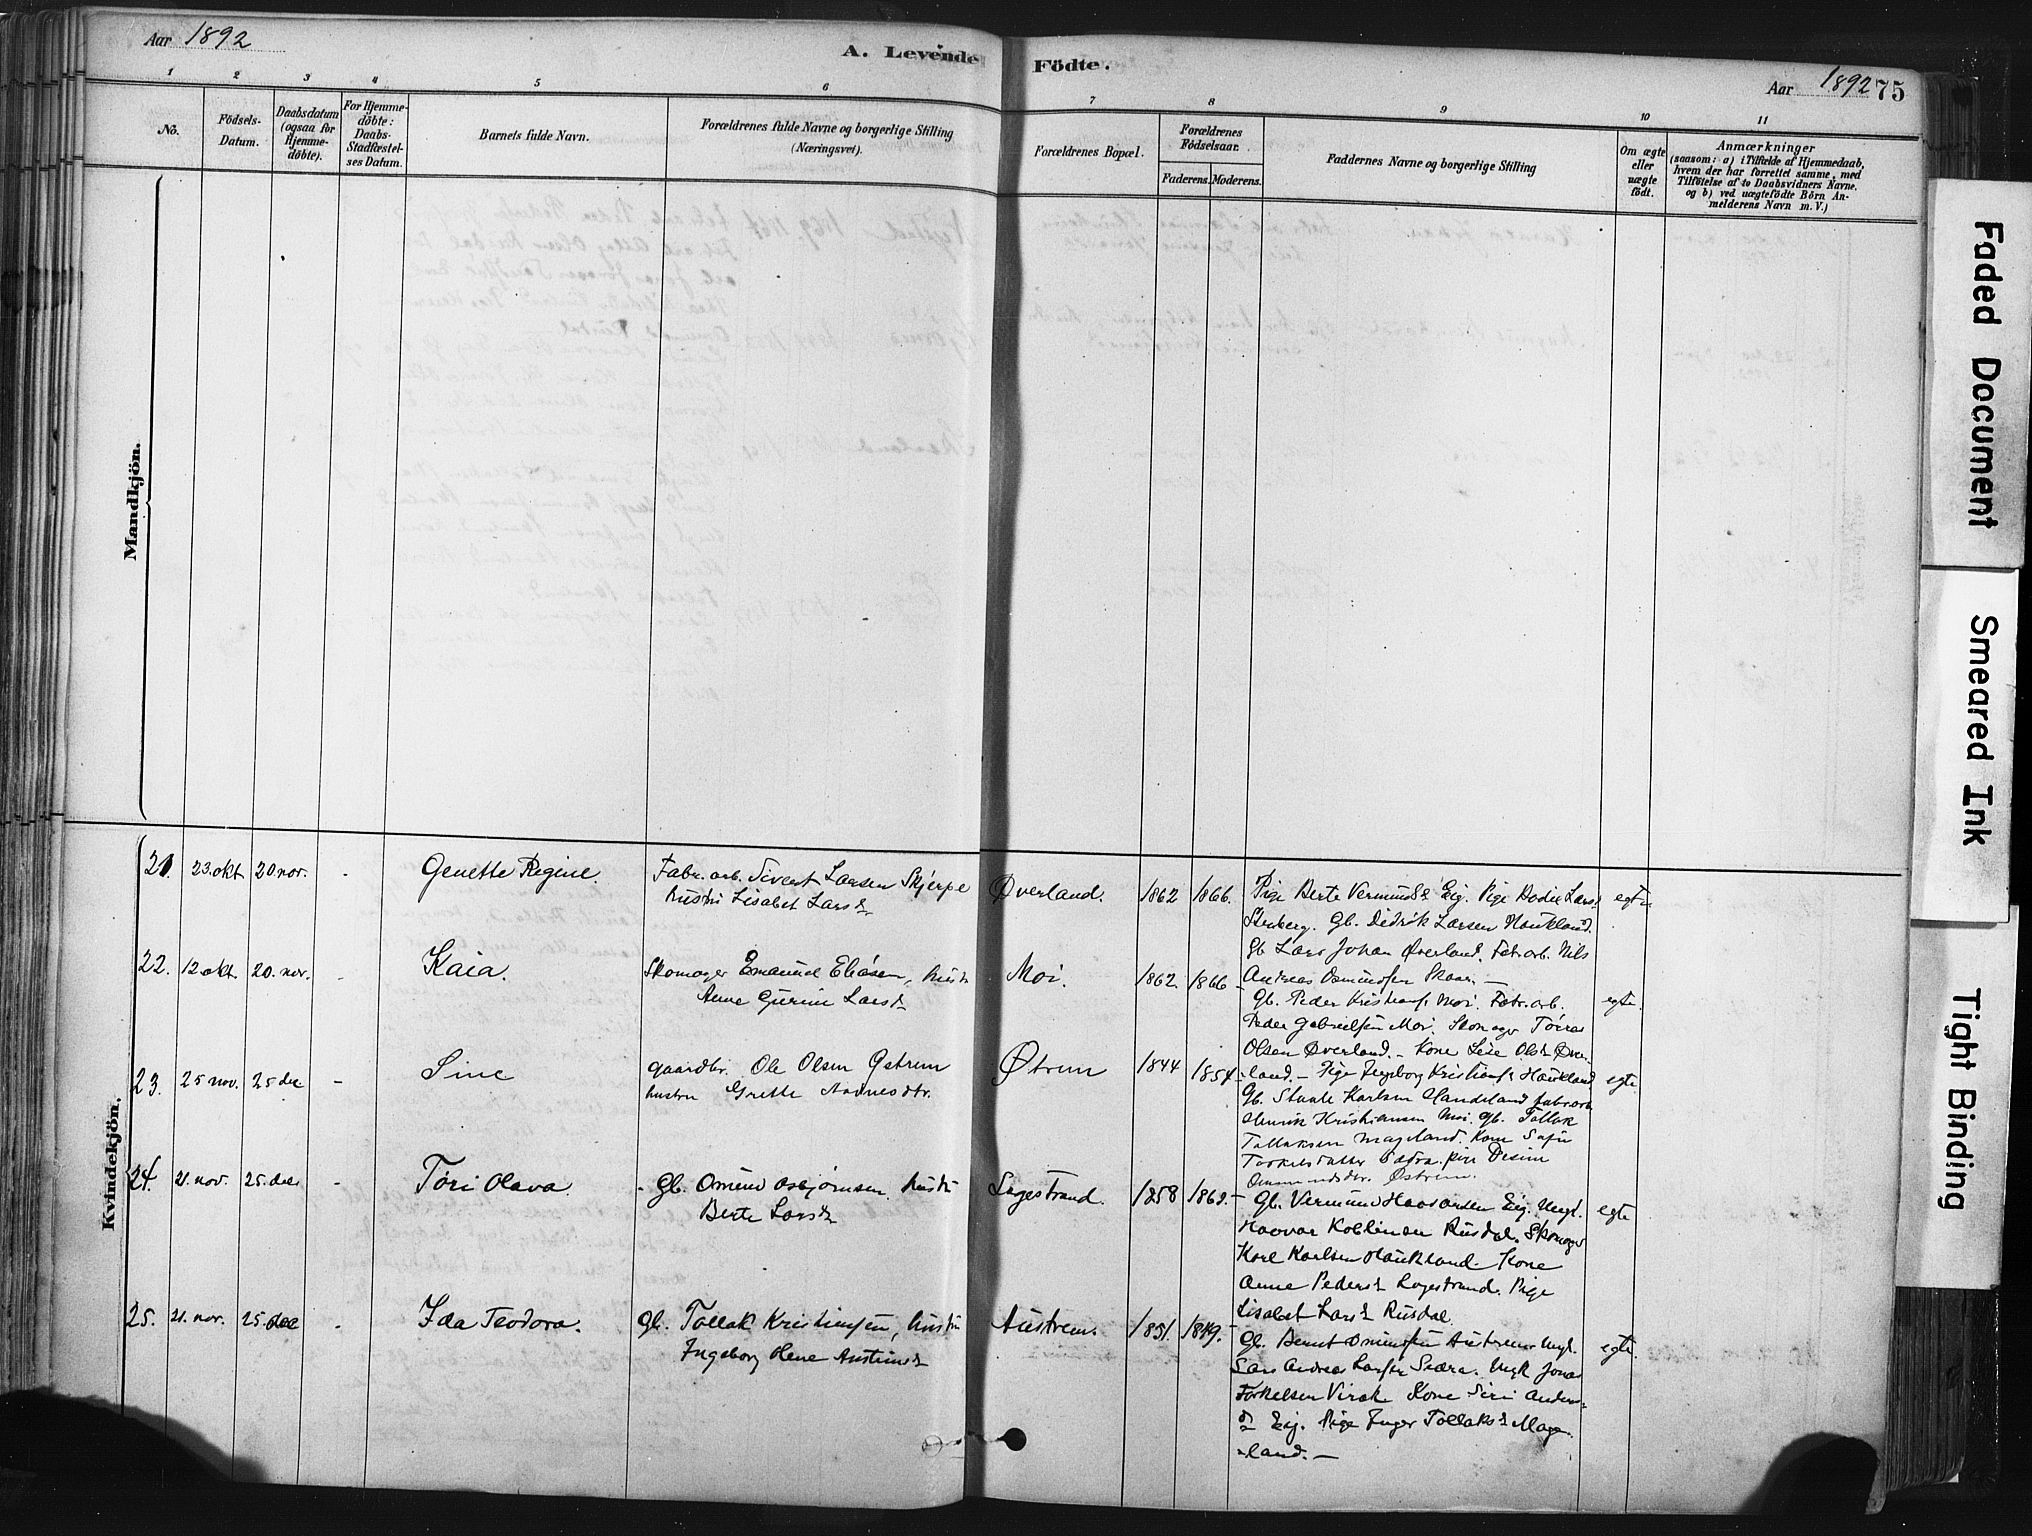 Aar 1892
A. Levende Födte.
Aar 1892 75
1 2 3 4 5 6 7 8 9 10 11
No.
Födsels-
Datum.
Daabsdatum
(ogsaa for
Hjemme-
döbte).
For Hjemme-
döbte:
Daabs-
Stadfæstel-
ses Datum.
Barnets fulde Navn.
Forældrenes fulde Navne og borgerlige Stilling
(Næringsvei).
Forældrenes Bopæl.
Forældrenes
Födselsaar.
Faderens. Moderens.
Faddernes Navne og borgerlige Stilling
Om ægte
eller
uægte
födt.
Anmærkninger
(saasom: a) i Tilfælde af Hjemmedaab,
hvem der har forrettet samme, med
Tilföielse af to Daabsvidners Navne,
og b) ved uægtefödte Börn An-
melderens Navn m. V.)
Mandkjön.
Kvindekjön.
21. 23. okt 20 nov. - Genette Regine.
Fabr. arb. Sivert Larsen Skjerpe
hustru Lisabet Larsd.
Øverland. 1862 1866.
Pige Berte Vermunds Eig. Pige Bodil Lars
Stenberg. Gb. Didrik Larsen Haukland.
Gb Lars Johan Øverland. Fabr. arb. Nils
Andreas Osmundsen Skaar. -
egte
22. 12 okt. 20. nov. - Kaia.
Skomager Emanuel Eliasen, hustr
Anne Gurine Larsd.
Moi. 1862 1866 -
Gb. Peder Kristians. Moi. Fabr. arb.
Peder Gabrielsen Moi. Skomager Tørres
Olsen Øverland. - Kone Lise Olsd. Øver-
land. - Pige Ingeborg Kristians Haukland
egte.
23. 25 nov. 25 dec - Sine
gaardbr. Ole Olsen Østrem
hustru Grethe Aadnesdtr.
Østrem 1844 1854 -
Gb. Karlsen Handeland fabr. arb.
Henrik Kristiansen Moi. gb. Tollak
Tollaksen Mageland. Kone
Torkelsdatter pige
Omundsdtr. Østrem.
egte
24. 21. nov. 25. dec - Tøri Olava.
- Gb. Omund Asbjørnsen, hustr
Berte Larsd.
Legestrand. 1858 1862. -
Gb. Vermund Haavardsen Eig. Ungk.
Haavar Rusdal. Skomager
Karl Karlsen Haukland. Kone
Anne Pedersd Legestrand. Pige
Lisabet Larsd Rusdal.
egte
25. 21. nov. 25. dec - Ida Teodora.
Gb. Tollak Kristiansen, hustru
Ingeborg Helene
Austrem. 1851. 1849. -
Gb. Bernt Omundsen Austrem Ungk.
Lars Andreas Larsen Ungk Jonas
Torkelsen Virak Kone Siri Anders-
d. Eig. Pige Inger Tollaksd Mage-
land. -
egte.
Faded Document
Smeared Ink
Tight Binding